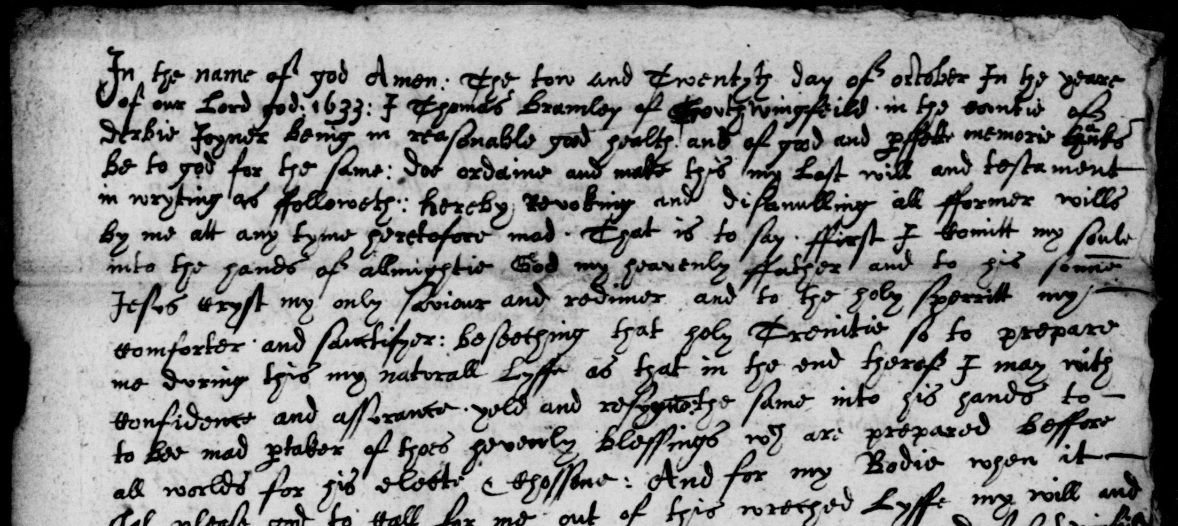 In the name of god Amen: The tow and Twentyth day of october In the yeare
of our Lord god: 1633: I Thomas Bramley of Southwingfeild in the countie of
derbie Joyner being in reasonable good health and of good and pffecte memorie thanks
be to god for the same: doe ordaine and make this my Last will and testament
in wryting as ffolloweth:: hereby Revoking and disanulling all fformer wills
by me att any tyme heretofore mad. That is to say. ffirst I Comitt my soule
into the hands of allmightie God my heavenly ffather and to his sonne
Jesus cryst my only saviour and redimer and to the holy sperritt my
comforter and sanctifyer: beseeching that holy Trenitie so to prepare
me during this my naturall Lyffe as that in the end therof I may with
confidence and assurance yeld and resygne the same into his hands to
to bee mad ptaker of thoes hevenly blessings wch are prepared beffore
all worlds for his electe & chossene: And for my Bodie when it
shal please god to call for me out of this wreched Lyffe my will and